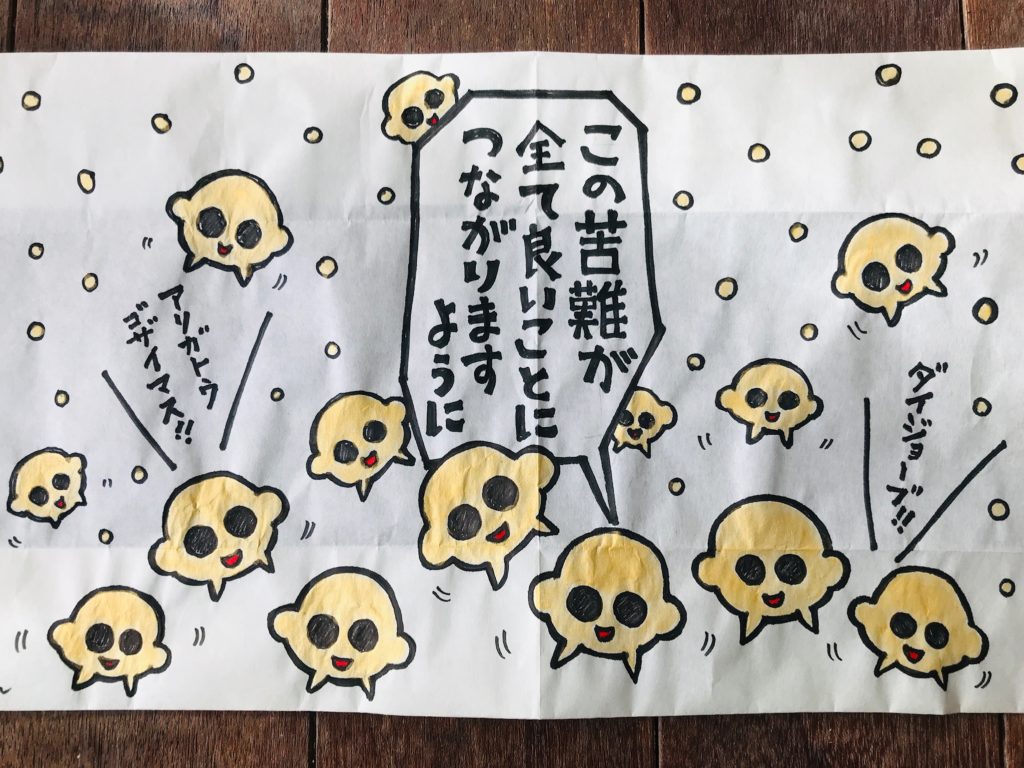 この苦難が
全て良いことに
つながります
ように
ダイジョーブ!!
アリガトウ
ゴザイマス!!